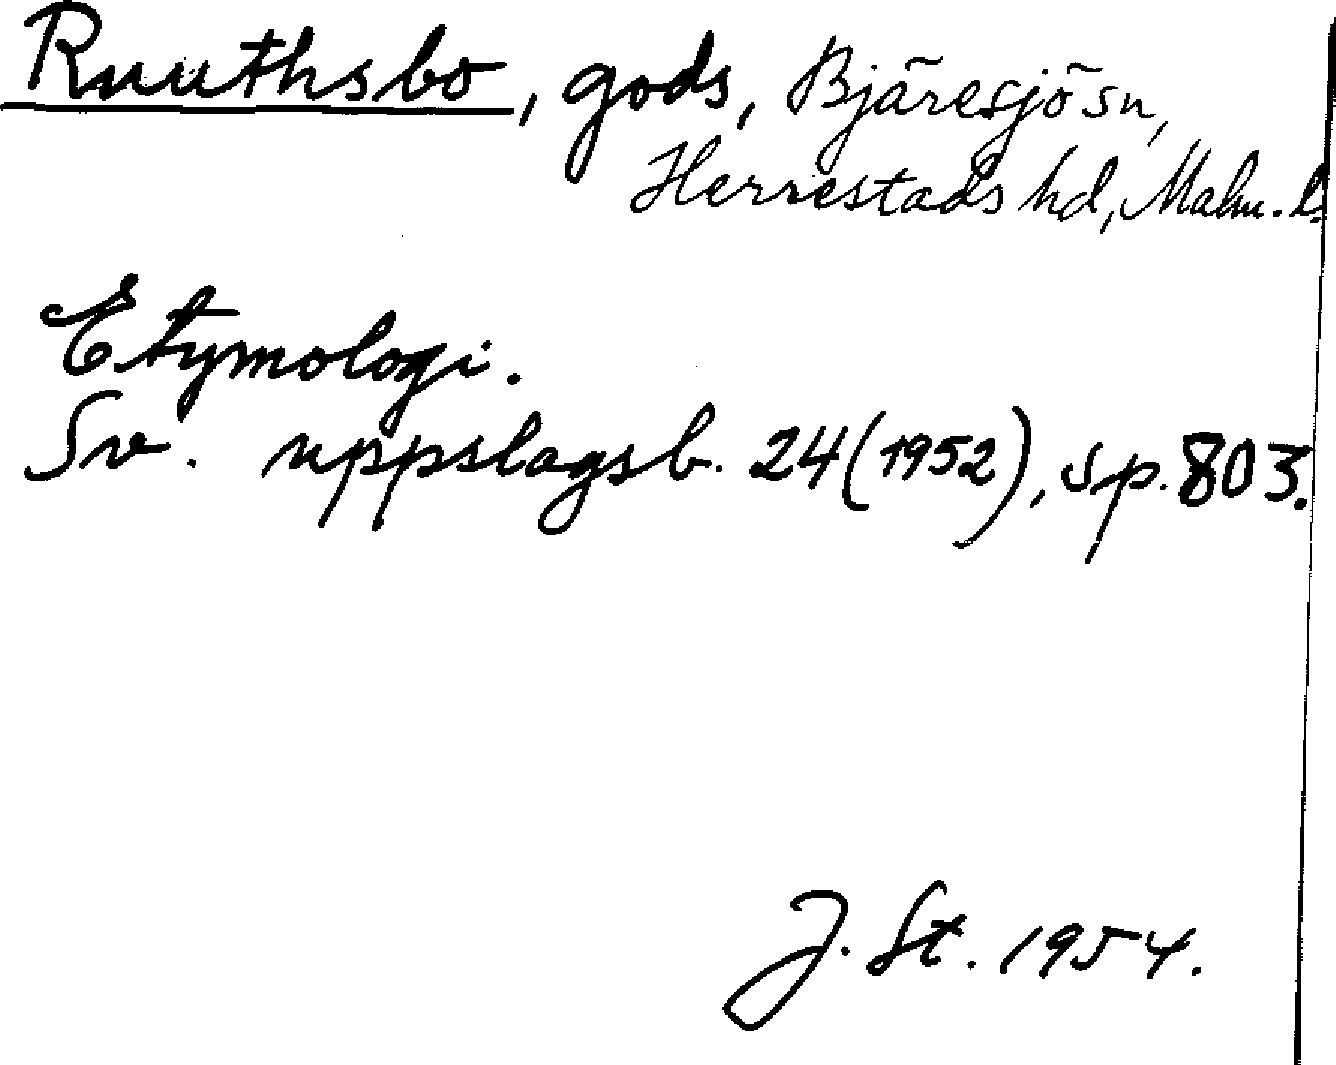 Ruuthsbo, gods, Bjäresjö sn,
Herrestads hd, Malm. l.
Etymologi.
Sv. uppslagsb. 24 (1952), sp. 803.
J. St. 1954.